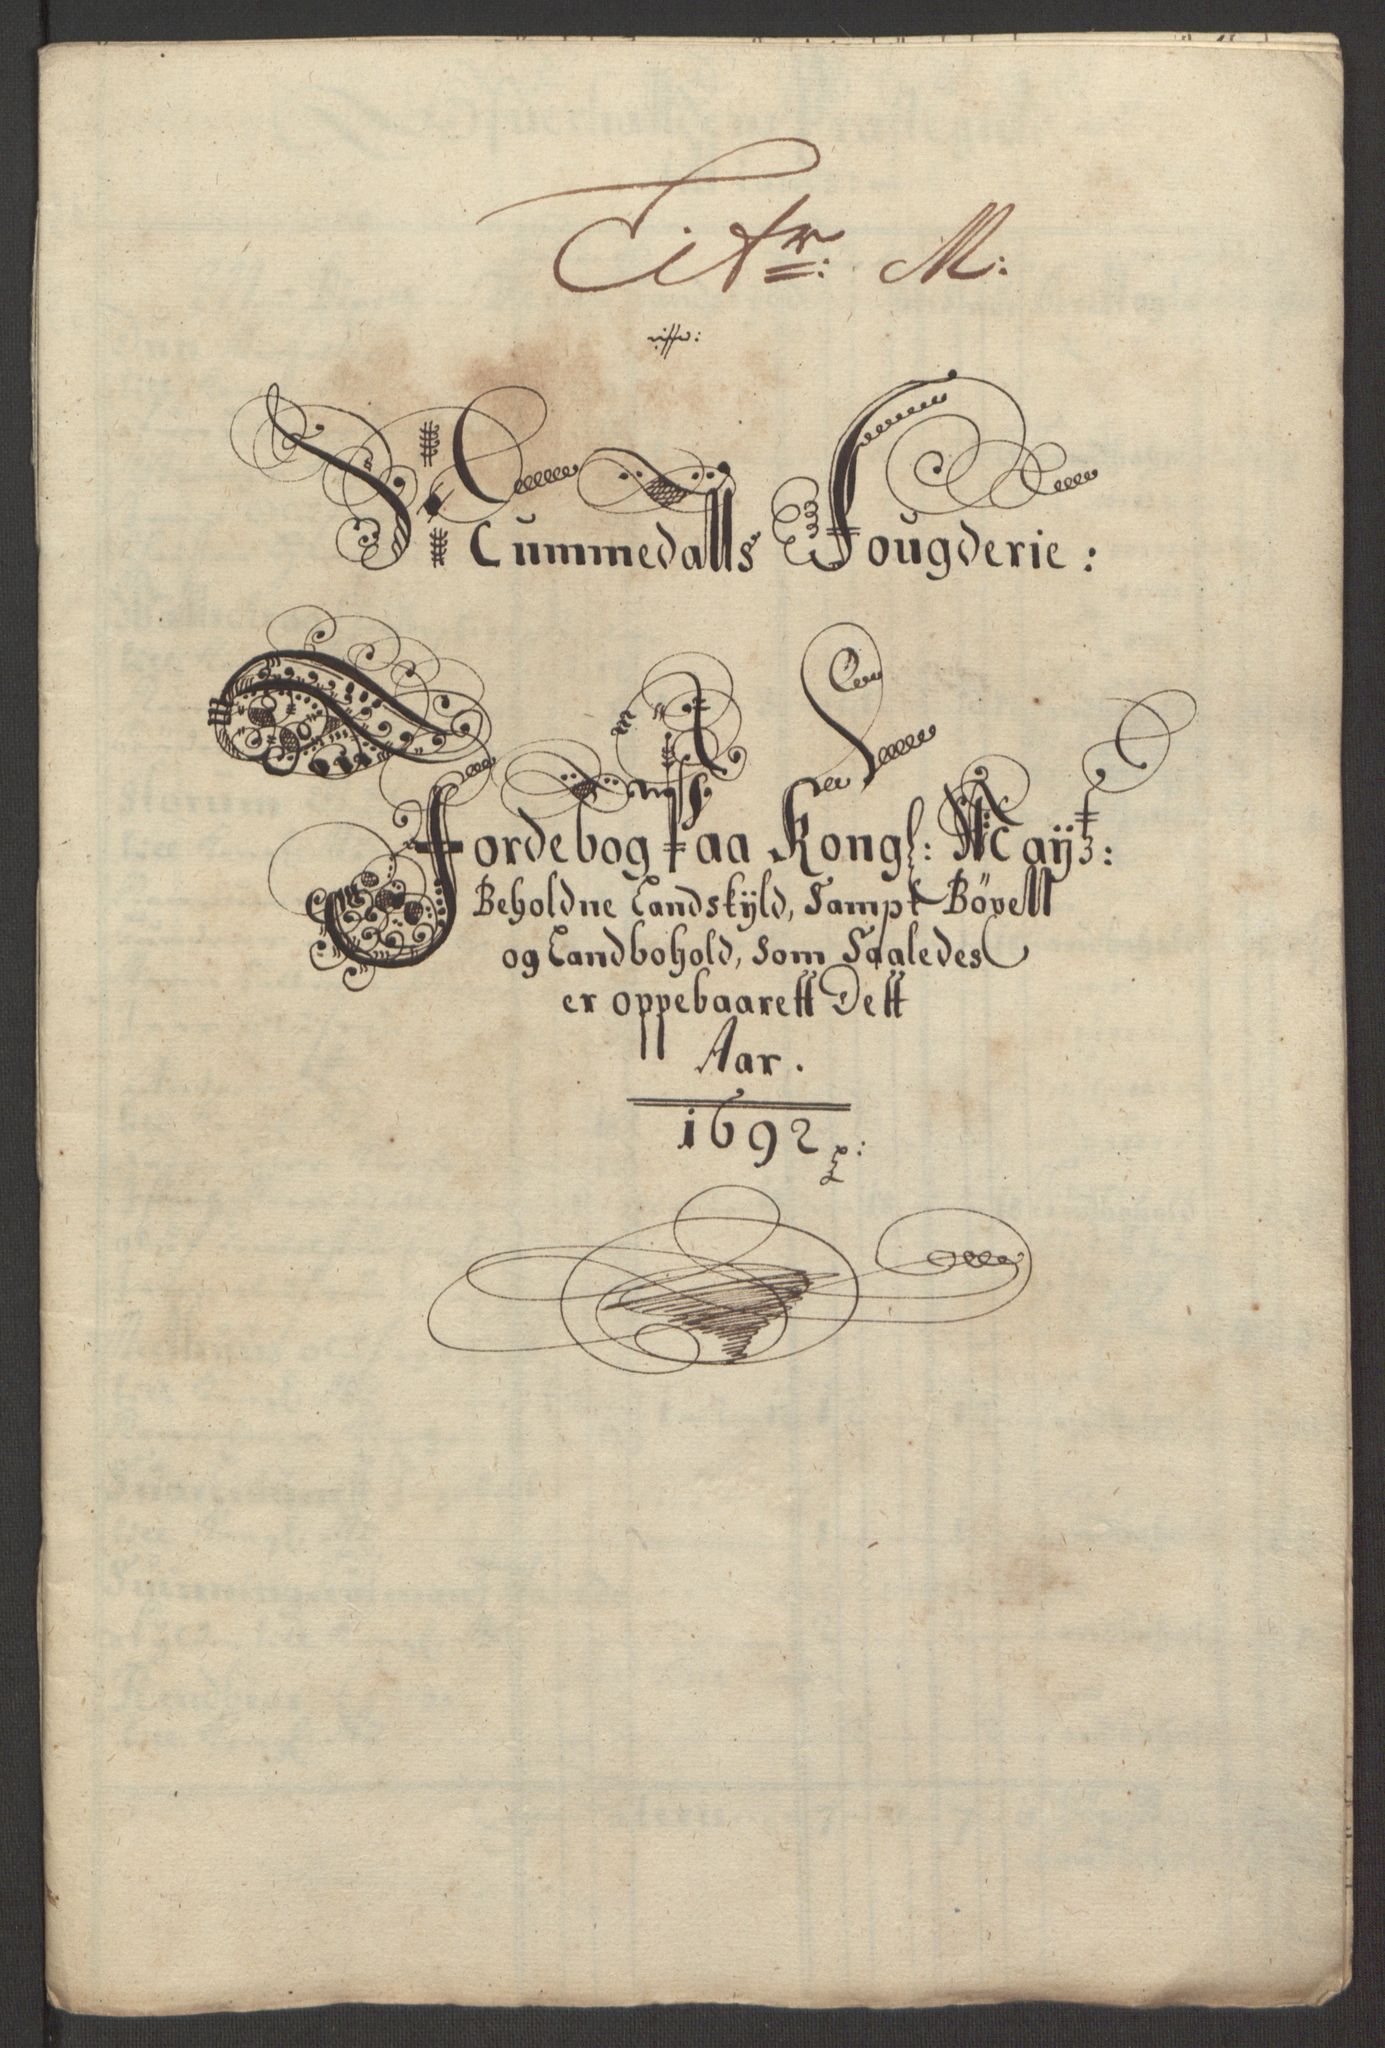 Litr: M:
Nummedalls Fougderie:
Jordebog Paa Kongl: Mayts:
Beholdne Landskÿld, Sampt Böxell
og Landbohold, som Saaledes
er oppebaarett Dett
Aar.
1692